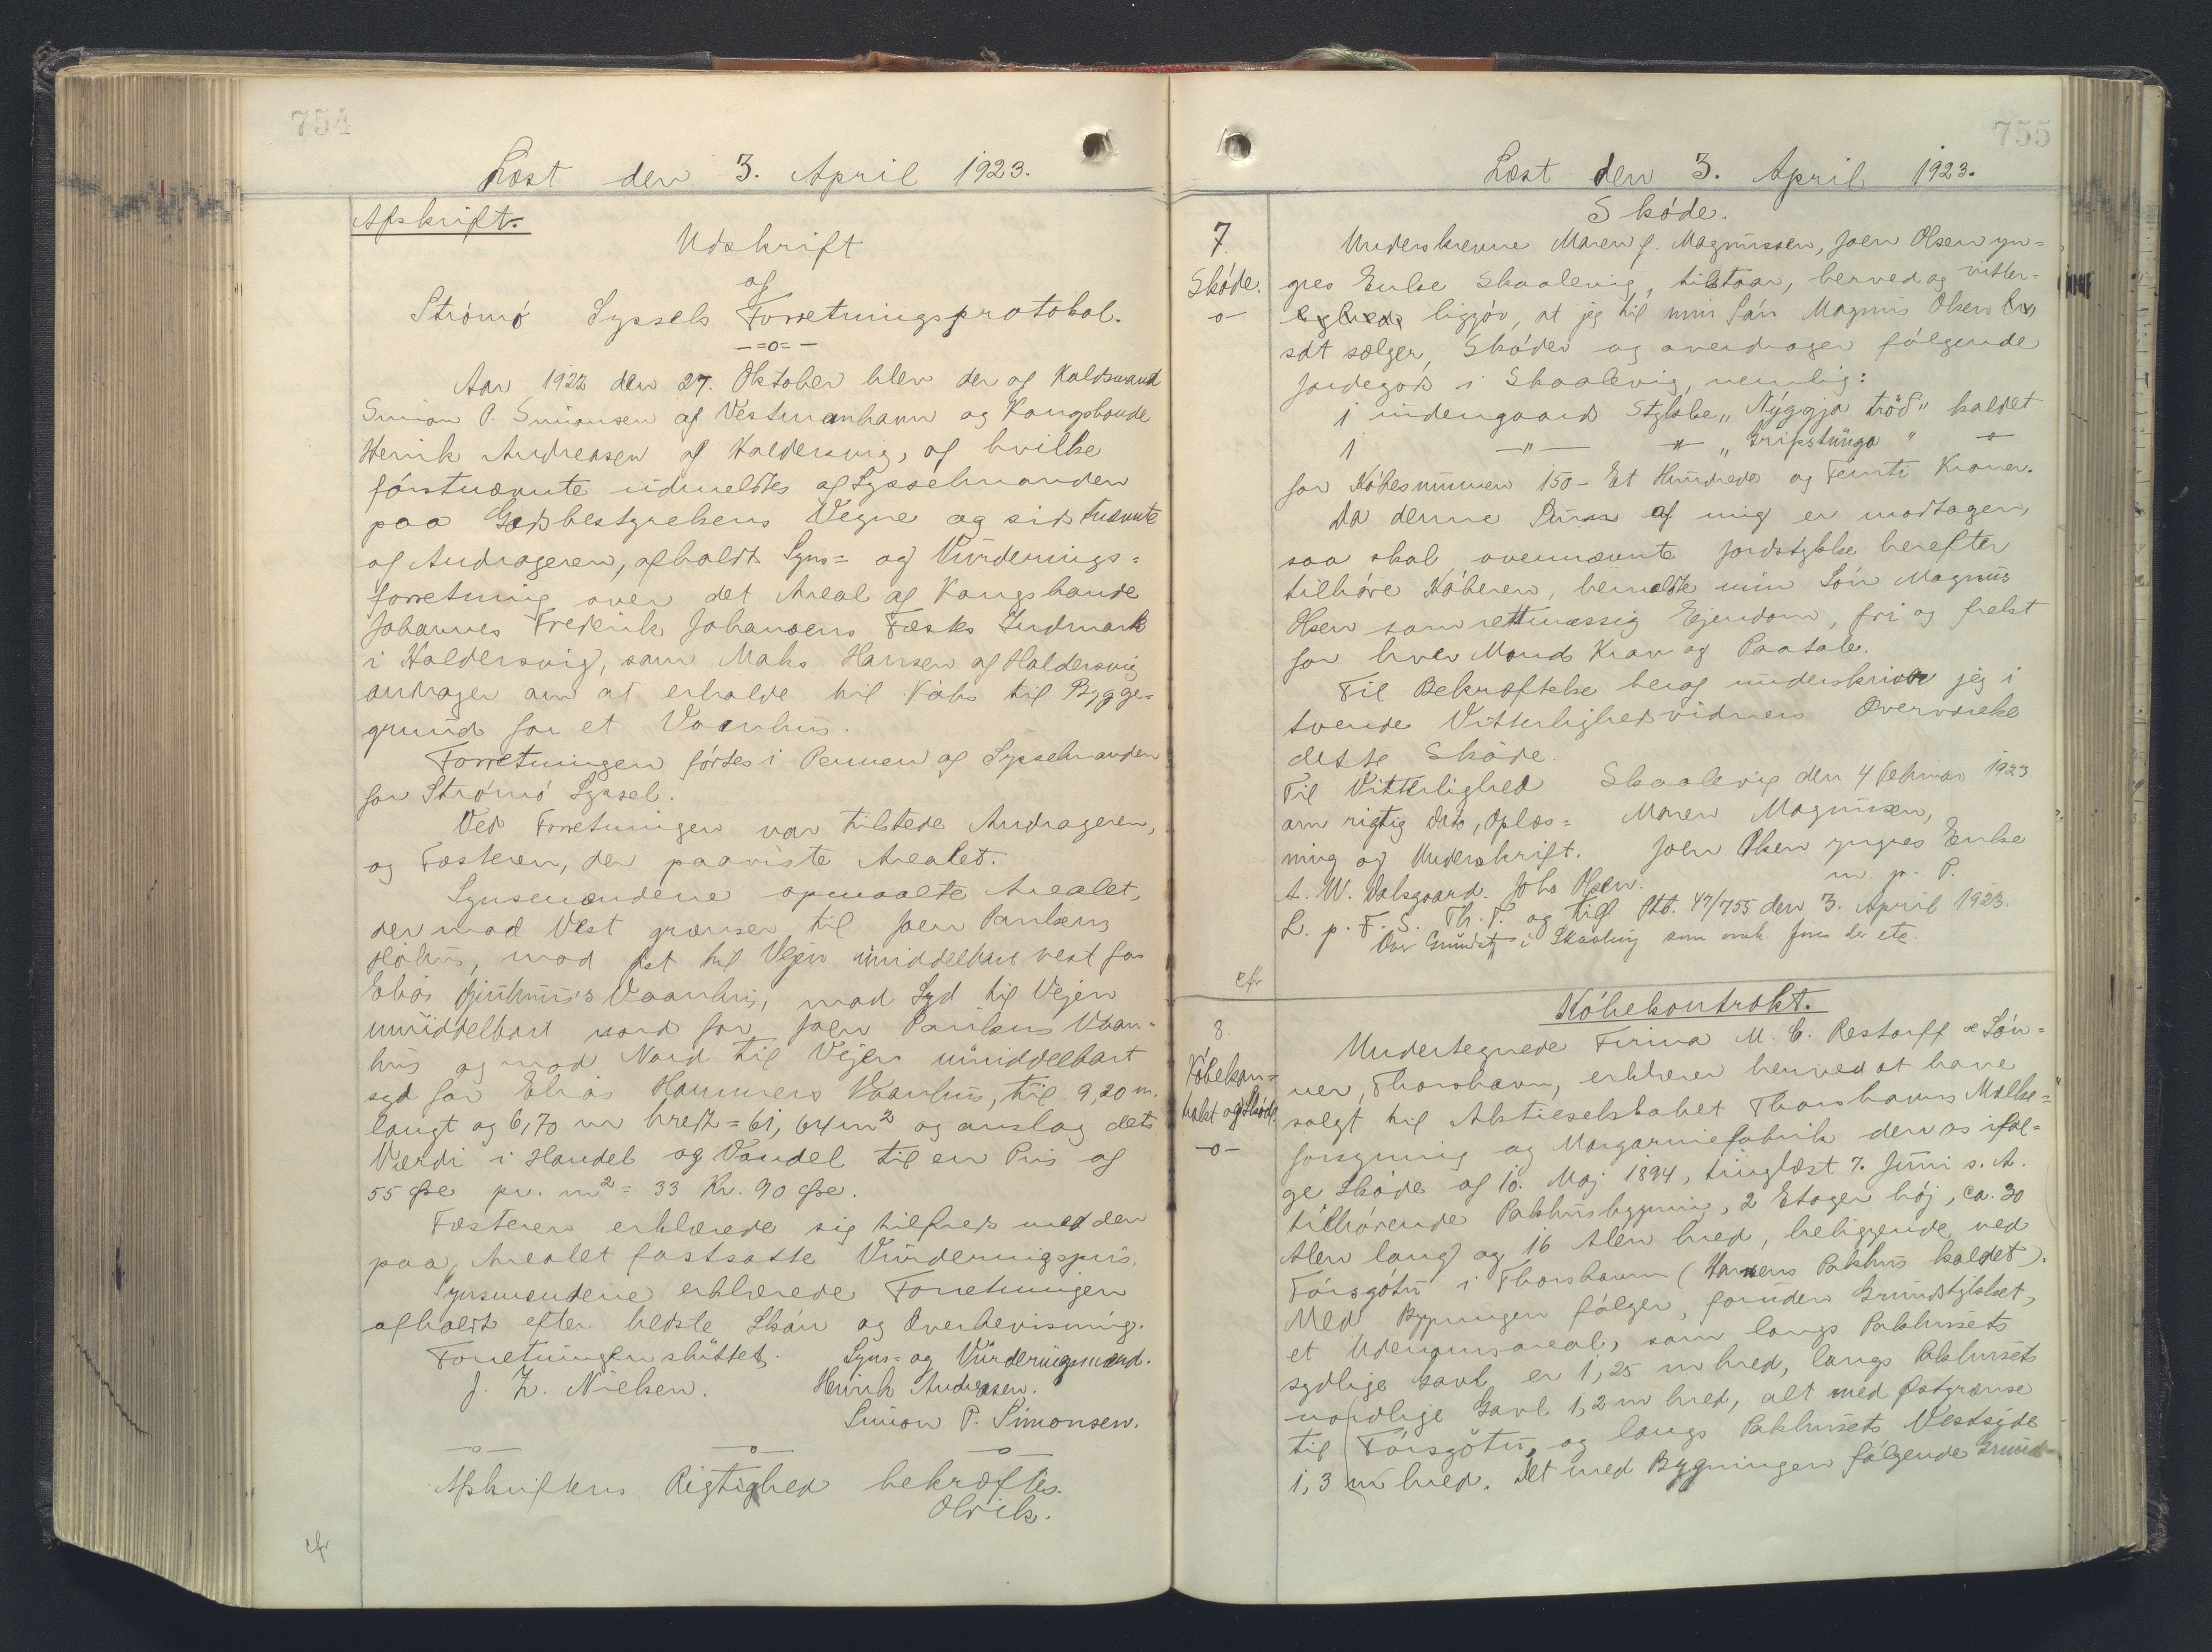 754
Læst den 3. April 1923.
Afskrift.
Udskrift
af
Strömö Syssels Forretningsprotokol.
-=o=-
Aar 1922 den 27. Oktober blev der af Kaldsmand
Simon P. Simonsen af Vestmanhavn og Kongsbonde
Henrik Andreasen af Haldersvig, af hvilke
förstnævnte udmeldtes af Sysselmanden
paa Godsbestyrelsens Vegne og sidstnævnte
af Andrageren, afholdt Syns= og Vurderings=
forretning over det Areal af Kongsbonde
Johannes Frederik Johansens Fæsks Indmark
i Haldersvig, som Maks Hansen af Haldersvig
andrager om at erholde til Köbs til Bygge=
grund for et Vaanhus.
Forretningen förtes i Pennen af Sysselmanden
for Strömö Syssel.
Ved Forretningen var tilstede Andrageren,
og Fæsteren, der paaviste Arealet.
Synsmændene opmaalte Arealet,
der mod Vest grænser til Joen Paulsens
Höhus, mod Øst til Vejen umiddelbart vest for
Elias Vaanhus, mod Syd til Vejen
umiddelbart nord for Joen Paulsens Vaan-
hus og mod Nord til Vejen umiddelbart
syd for Elias Hammers Vaanhus, til 9,20 m.
langt og 6,70 m bredt = 61,64 m² og anslog dets
Værdi i Handel og Vandel til en Pris af
55 Øre pr. m² = 33 Kr. 90 Øre.
Fæsteren erklærede sig tilfreds med den
paa Arealet fastsatte Vurderingspris.
Synsmændene erklærede Forretningen
afholdt efter bedste Skön og Overbevisning.
Forretningen sluttet. Syns= og Vurderingsmænd.
J. Z. Nielsen. Henrik Andreasen.
Simon P. Simonsen.
—o— —o— —o—
Afskriftens Rigtighed bekræftes.
Olrik.
cfr
755
Læst den 3. April 1923.
Sköde.
7.
Sköde.
-o-
Underskrevne Maren f. Magnussen, Joen Olsen yn=
gres Enke Skaalevig, tilstaar, herved og vitter-
ligjör, at jeg til min Sön Magnus Olsen
sdt sælger, Sköder og overdrager fölgende
Jordegods i Skaalevig, nemlig:
1 indengaards Stykke „Nýggja tröð" kaldet
1 —"— —"— „Gripstunga" —"—
for Köbesummen 150 - Et Hundrede og Femti Kroner.
Da denne Sum af mig er modtagen,
saa skal ovennævnte Jordstykke herefter
tilhöre Köberen, bemeldte min Sön Magnus
Olsen som retmæssig Ejendom, fri og frelst
for hver Mands Krav og Paatale.
Til Bekræftelse heraf underskriver jeg i
tvende Vitterlighedsvidners Overværelse
dette Sköde.
Til Vitterlighed Skaalevig den 4 Februar 1923
om rigtig Dato, Oplæs= Maren Magnussen,
ning og Underskrift. Joen Olsen yngres Enke
A. W. Dalsgaard. Johs Olsen. m. p. P.
L. p. F. S. Th. T. og tilf. Ptb. 47/755 den 3. April 1923.
cfr
8.
Köbekon=
trakt og Sköde.
-o-
Köbekontrakt.
Undertegnede Firma M. C. Restorff & Sön=
ner, Thorshavn, erklærer herved at have
solgt til Aktieselskabet Thorshavns Mælke=
forsyning og Margarinefabrik den os iföl=
ge Sköde af 10. Maj 1894, tinglæst 7. Juni s. A.
tilhörende Pakhusbygning, 2 Etager höj, ca. 30
Alen lang og 16 Alen bred, beliggende ved
Tórsgötu i Thorshavn (Hansens Pakhus kaldet).
Med Bygningen fölger, foruden Grundstykket,
et Udenomsareal, som langs Pakhusets
sydlige Gavl er 1,25 m bred, langs Pakhusets
nordlige Gavl 1,2 m bred, alt med Østgrænse
til Tórsgötu, og langs Pakhusets Vestside
1,3 m bred. Det med Bygningen fölgende Grund-